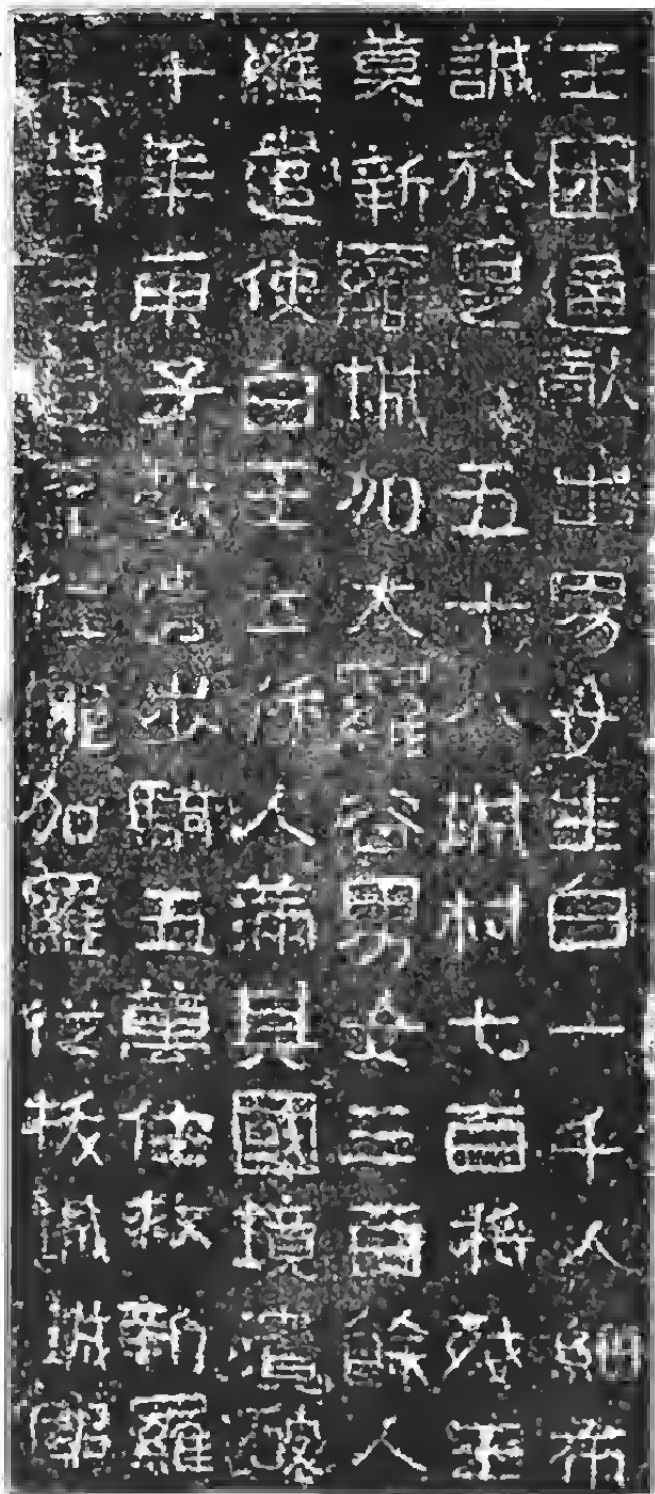 王困逼獻出男女生白一千人細布
誠於是五十八城村七百將殘王
莫新羅城加太羅谷男女三百餘人
羅遣使白王云倭人滿其國境潰破
十年庚子教遣步騎五萬往救新羅
背急追至任那加羅從拔城城歸